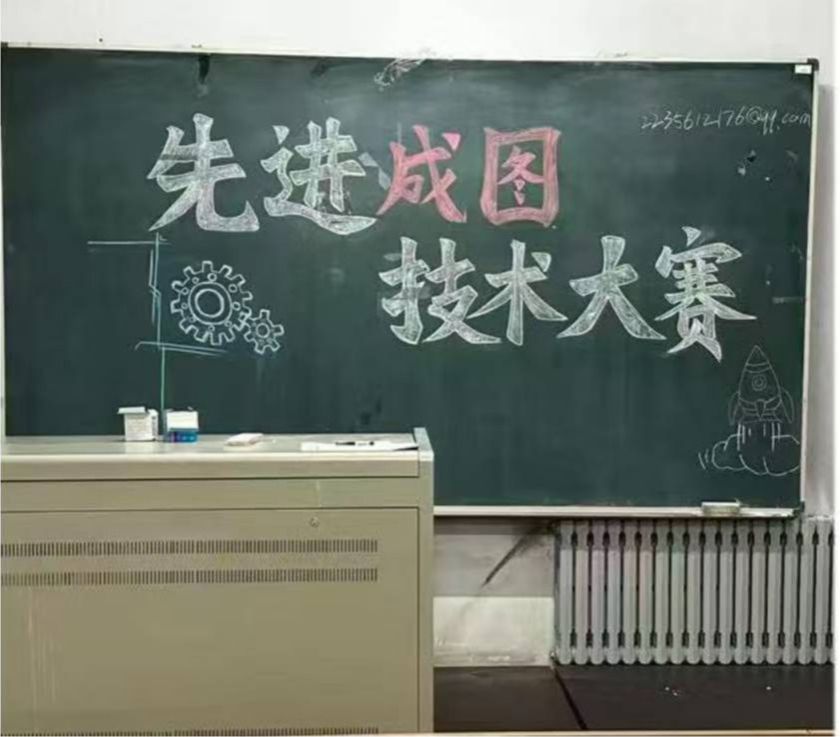 2235612176@qq.com
先进成图
技术大赛